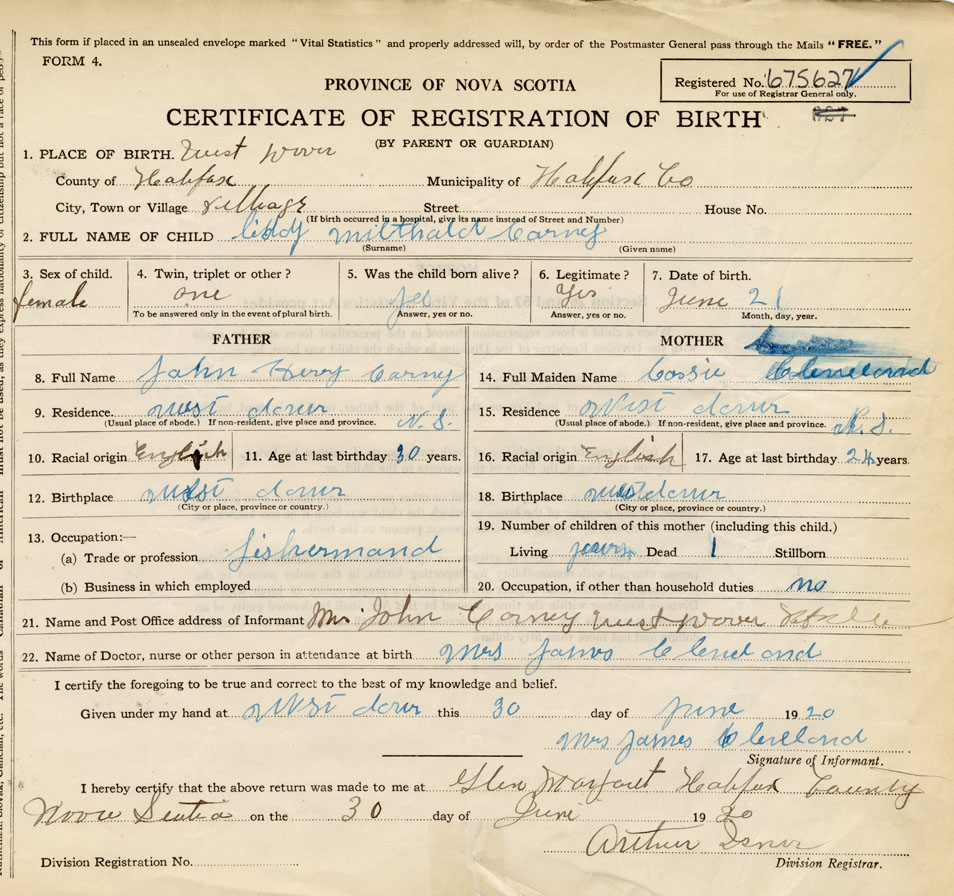 This form if placed in an unsealed envelope marked "Vital Statistics" and properly addressed will, by order of the Postmaster General pass through the Mails "FREE."
FORM 4.
Registered No. 675627
For use of Registrar General only.
PROVINCE OF NOVA SCOTIA
CERTIFICATE OF REGISTRATION OF BIRTH
(BY PARENT OR GUARDIAN)
1. PLACE OF BIRTH. West Dover
County of Halifax Municipality of Halifax Co
City, Town or Village Village Street House No.
(If birth occurred in a hospital, give its name instead of Street and Number)
2. FULL NAME OF CHILD Carney
(Surname) (Given name)
3. Sex of child. 4. Twin, triplet or other? 5. Was the child born alive? 6. Legitimate? 7. Date of birth.
female one yes Yes June 21
To be answered only in the event of plural birth. Answer, yes or no. Answer, yes or no. Month, day, year.
FATHER MOTHER
8. Full Name John Carney 14. Full Maiden Name Cassie Cleneland
9. Residence. West dover 15. Residence West dover
(Usual place of abode.) If non-resident, give place and province. N. S. (Usual place of abode.) If non-resident, give place and province. N. S.
10. Racial origin English 11. Age at last birthday 30 years. 16. Racial origin English 17. Age at last birthday 24 years.
12. Birthplace West dover 18. Birthplace West dover
(City or place, province or country.) (City or place, province or country.)
13. Occupation:— 19. Number of children of this mother (including this child.)
(a) Trade or profession fishermand Living Dead 1 Stillborn
(b) Business in which employed 20. Occupation, if other than household duties no
21. Name and Post Office address of Informant Mrs John Carney West Dover
22. Name of Doctor, nurse or other person in attendance at birth Mrs James Cleneland
I certify the foregoing to be true and correct to the best of my knowledge and belief.
Given under my hand at West dover this 30 day of June 1920
Mrs James Cleneland
Signature of Informant.
I hereby certify that the above return was made to me at Glen Margaret Halifax County
Nova Scotia on the 30 day of June 1920
Arthur Isnor
Division Registration No. Division Registrar.